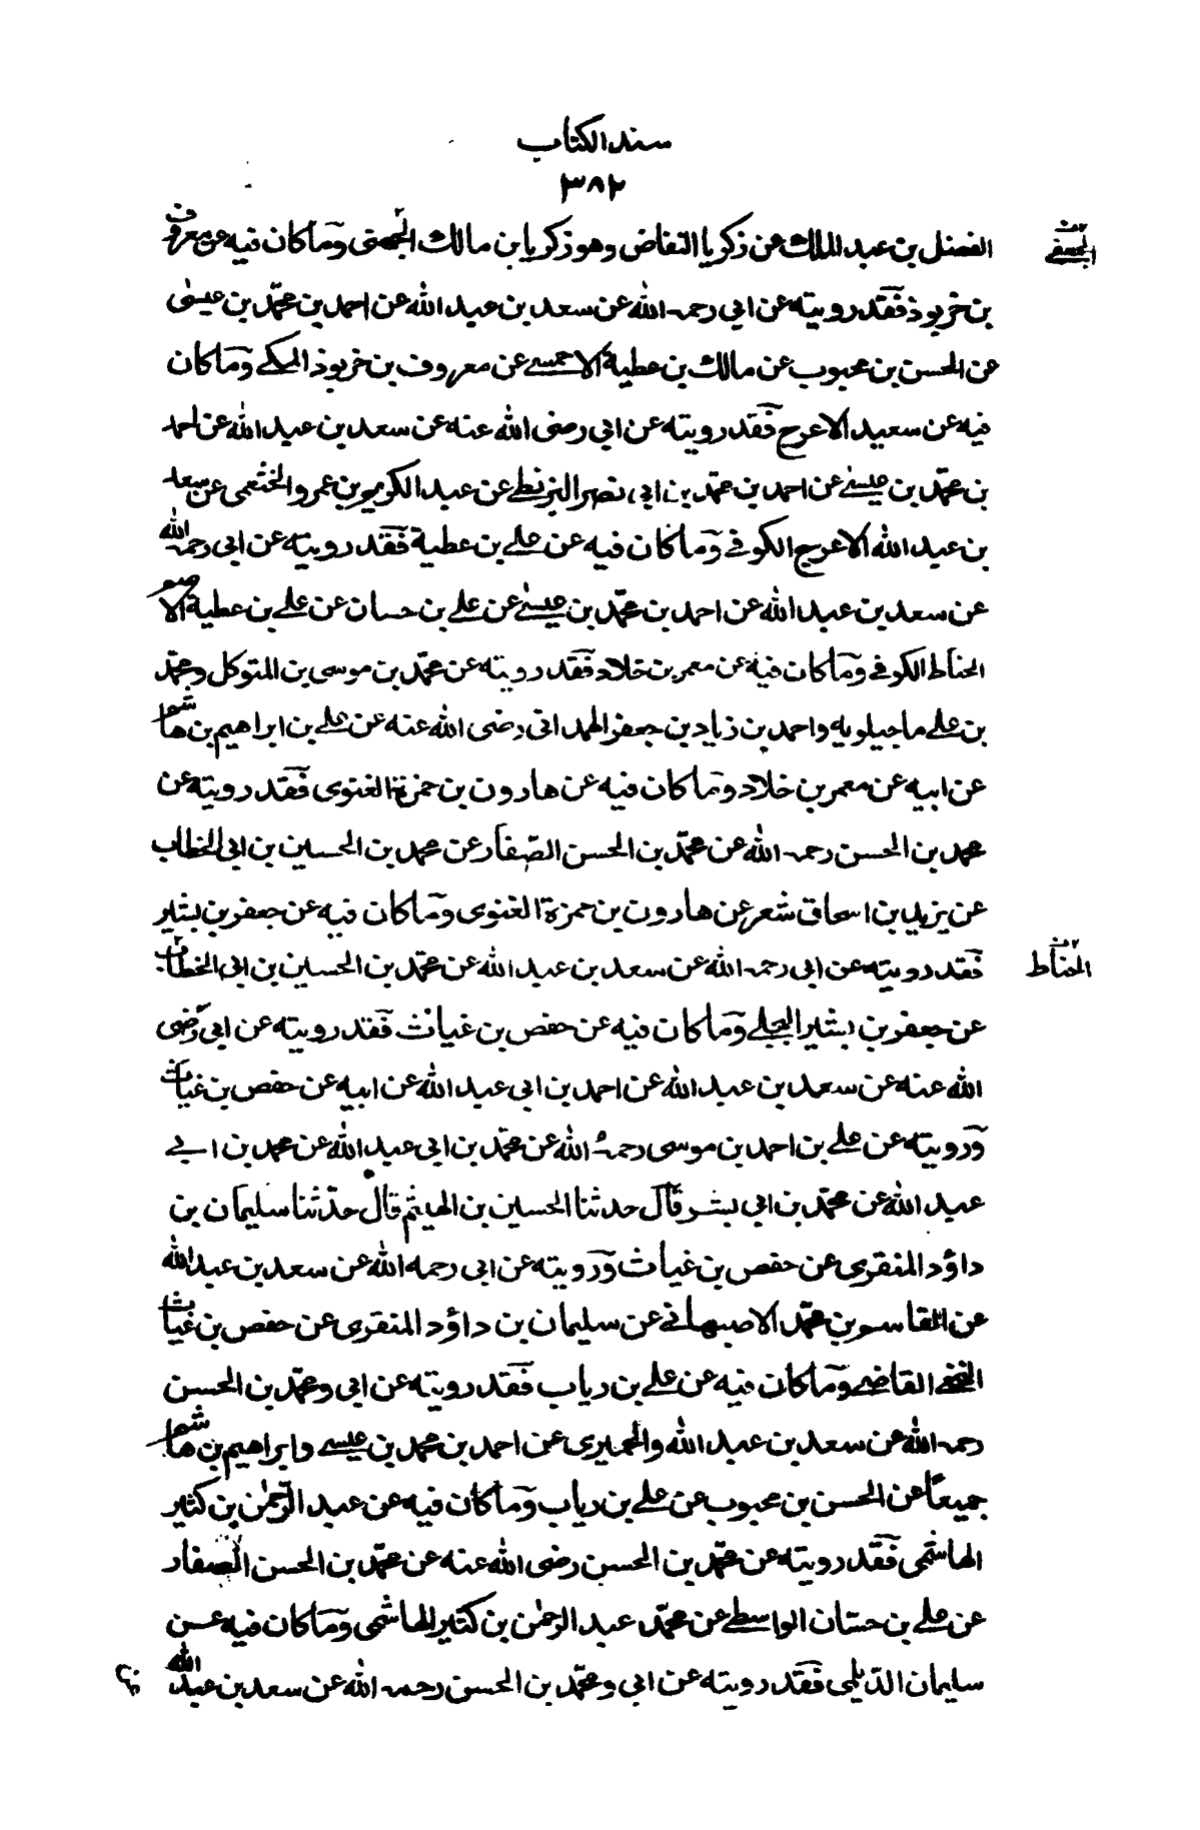 سند الكتاب
٣٨٢
الفضل بن عبد الملك عن زكريا النقاض وهو زكريا بن مالك الجعفى وما كان فيه عن معروف
الجعفي
بن خربوذ فقد رويته عن ابي رحمه الله عن سعد بن عبد الله عن احمد بن محمّد بن عيسى
عن الحسن بن محبوب عن مالك بن عطية الاحمسے عن معروف بن خربوذ المكے وما كان
فيه عن سعيد الاعرج فقد رويته عن ابي رضى الله عنه عن سعد بن عبد الله عن احمد
بن محمّد بن عيسےٰ عن احمد بن محمّد بن ابي نصر البزنطے عن عبد الكريم بن عمرو الخثعمى عن سعيد
بن عبد الله الاعرج الكوفے وما كان فيه عن علے بن عطية فقد رويته عن ابي رحمه الله
عن سعد بن عبد الله عن احمد بن محمّد بن عيسےٰ عن علے بن حسان عن علے بن عطية الاصم
الحناط الكوفے وما كان فيه عن معمر بن خلاد فقد رويته عن محمّد بن موسى بن المتوكل ومحمّد
بن علے ماجيلويه واحمد بن زياد بن جعفر الهمدانى رضى الله عنه عن علے بن ابراهيم بن هاشم
عن ابيه عن معمر بن خلاد وما كان فيه عن هارون بن حمزة الغنوى فقد رويته عن
محمد بن الحسن رحمه الله عن محمّد بن الحسن الصّفار عن محمد بن الحسين بن ابي الخطاب
عن يزيد بن اسحاق شعر عن هارون بن حمزة الغنوى وما كان فيه عن جعفر بن بشير
فقد رويته عن ابي رحمه الله عن سعد بن عبد الله عن محمّد بن الحسين بن ابي الخطاب
الحناط
عن جعفر بن بشير البجلے وما كان فيه عن حفص بن غياث فقد رويته عن ابي رضى
الله عنه عن سعد بن عبد الله عن احمد بن ابي عبد الله عن ابيه عن حفص بن غياث
ورويته عن علے بن احمد بن موسى رحمه الله عن محمّد بن ابي عبد الله عن محمد بن ابے
عبد الله عن محمّد بن ابي بشر قال حدثنا الحسين بن الهيثم قال حدّثنا سليمان بن
داؤد المنقرى عن حفص بن غياث ورويته عن ابي رحمه الله عن سعد بن عبد الله
عن القاسم بن محمّد الاصبهانے عن سليمان بن داؤد المنقرى عن حفص بن غياث
النخعے القاضے وما كان فيه عن علے بن رياب فقد رويته عن ابي ومحمّد بن الحسن
رحمه الله عن سعد بن عبد الله والحميرى عن احمد بن محمد بن عيسے وابراهيم بن هاشم
جميعًا عن الحسن بن محبوب عن علے بن رياب وما كان فيه عن عبد الرّحمٰن بن كثير
الهاشمى فقد رويته عن محمّد بن الحسن رضى الله عنه عن محمّد بن الحسن الصفار
عن علے بن حسّان الواسطے عن محمّد عبد الرحمٰن بن كثير الهاشمى وما كان فيه عن
سليمان الدّيلمى فقد رويته عن ابي ومحمّد بن الحسن رحمه الله عن سعد بن عبد الله
بن